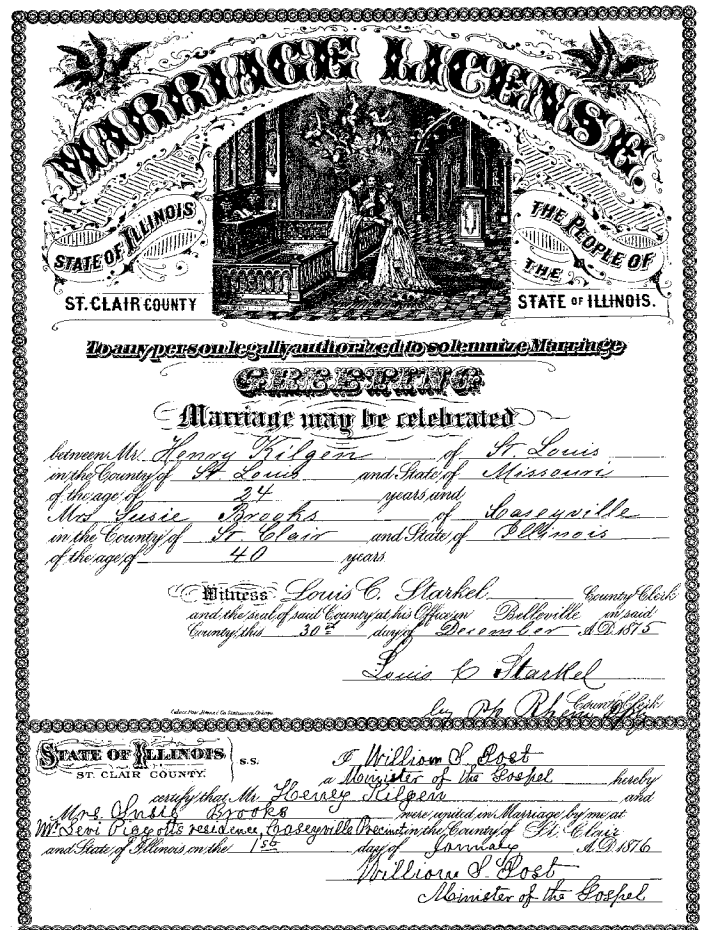 MARRIAGE LICENSE.
STATE OF ILLINOIS
ST. CLAIR COUNTY
THE PEOPLE OF
THE
STATE OF ILLINOIS.
To any person legally authorized to solemnize Marriage
GREETING
Marriage may be celebrated
between Mr. Henry Kilgen of St. Louis
in the County of St. Louis and State of Missouri
of the age of 24 years and
Mrs Susie Brooks of Caseyville
in the County of St. Clair and State of Illinois
of the age of 40 years
Witness Louis C. Starkel County Clerk
and the seal of said County at his Office in Belleville in said
County this 30th day of December A.D. 1875
Louis C Starkel
by Ph County Clerk
STATE OF ILLINOIS
ST. CLAIR COUNTY.
S.S.
I William S. Post
a Minister of the Gospel hereby
certify that Mr. Henry Kilgen and
Mrs. Susie Brooks were united in Marriage by me at
Mr Levi Piggotts residence, Caseyville Precinct in the County of St. Clair
and State of Illinois, on the 1st day of January A.D. 1876
William S. Post
Minister of the Gospel